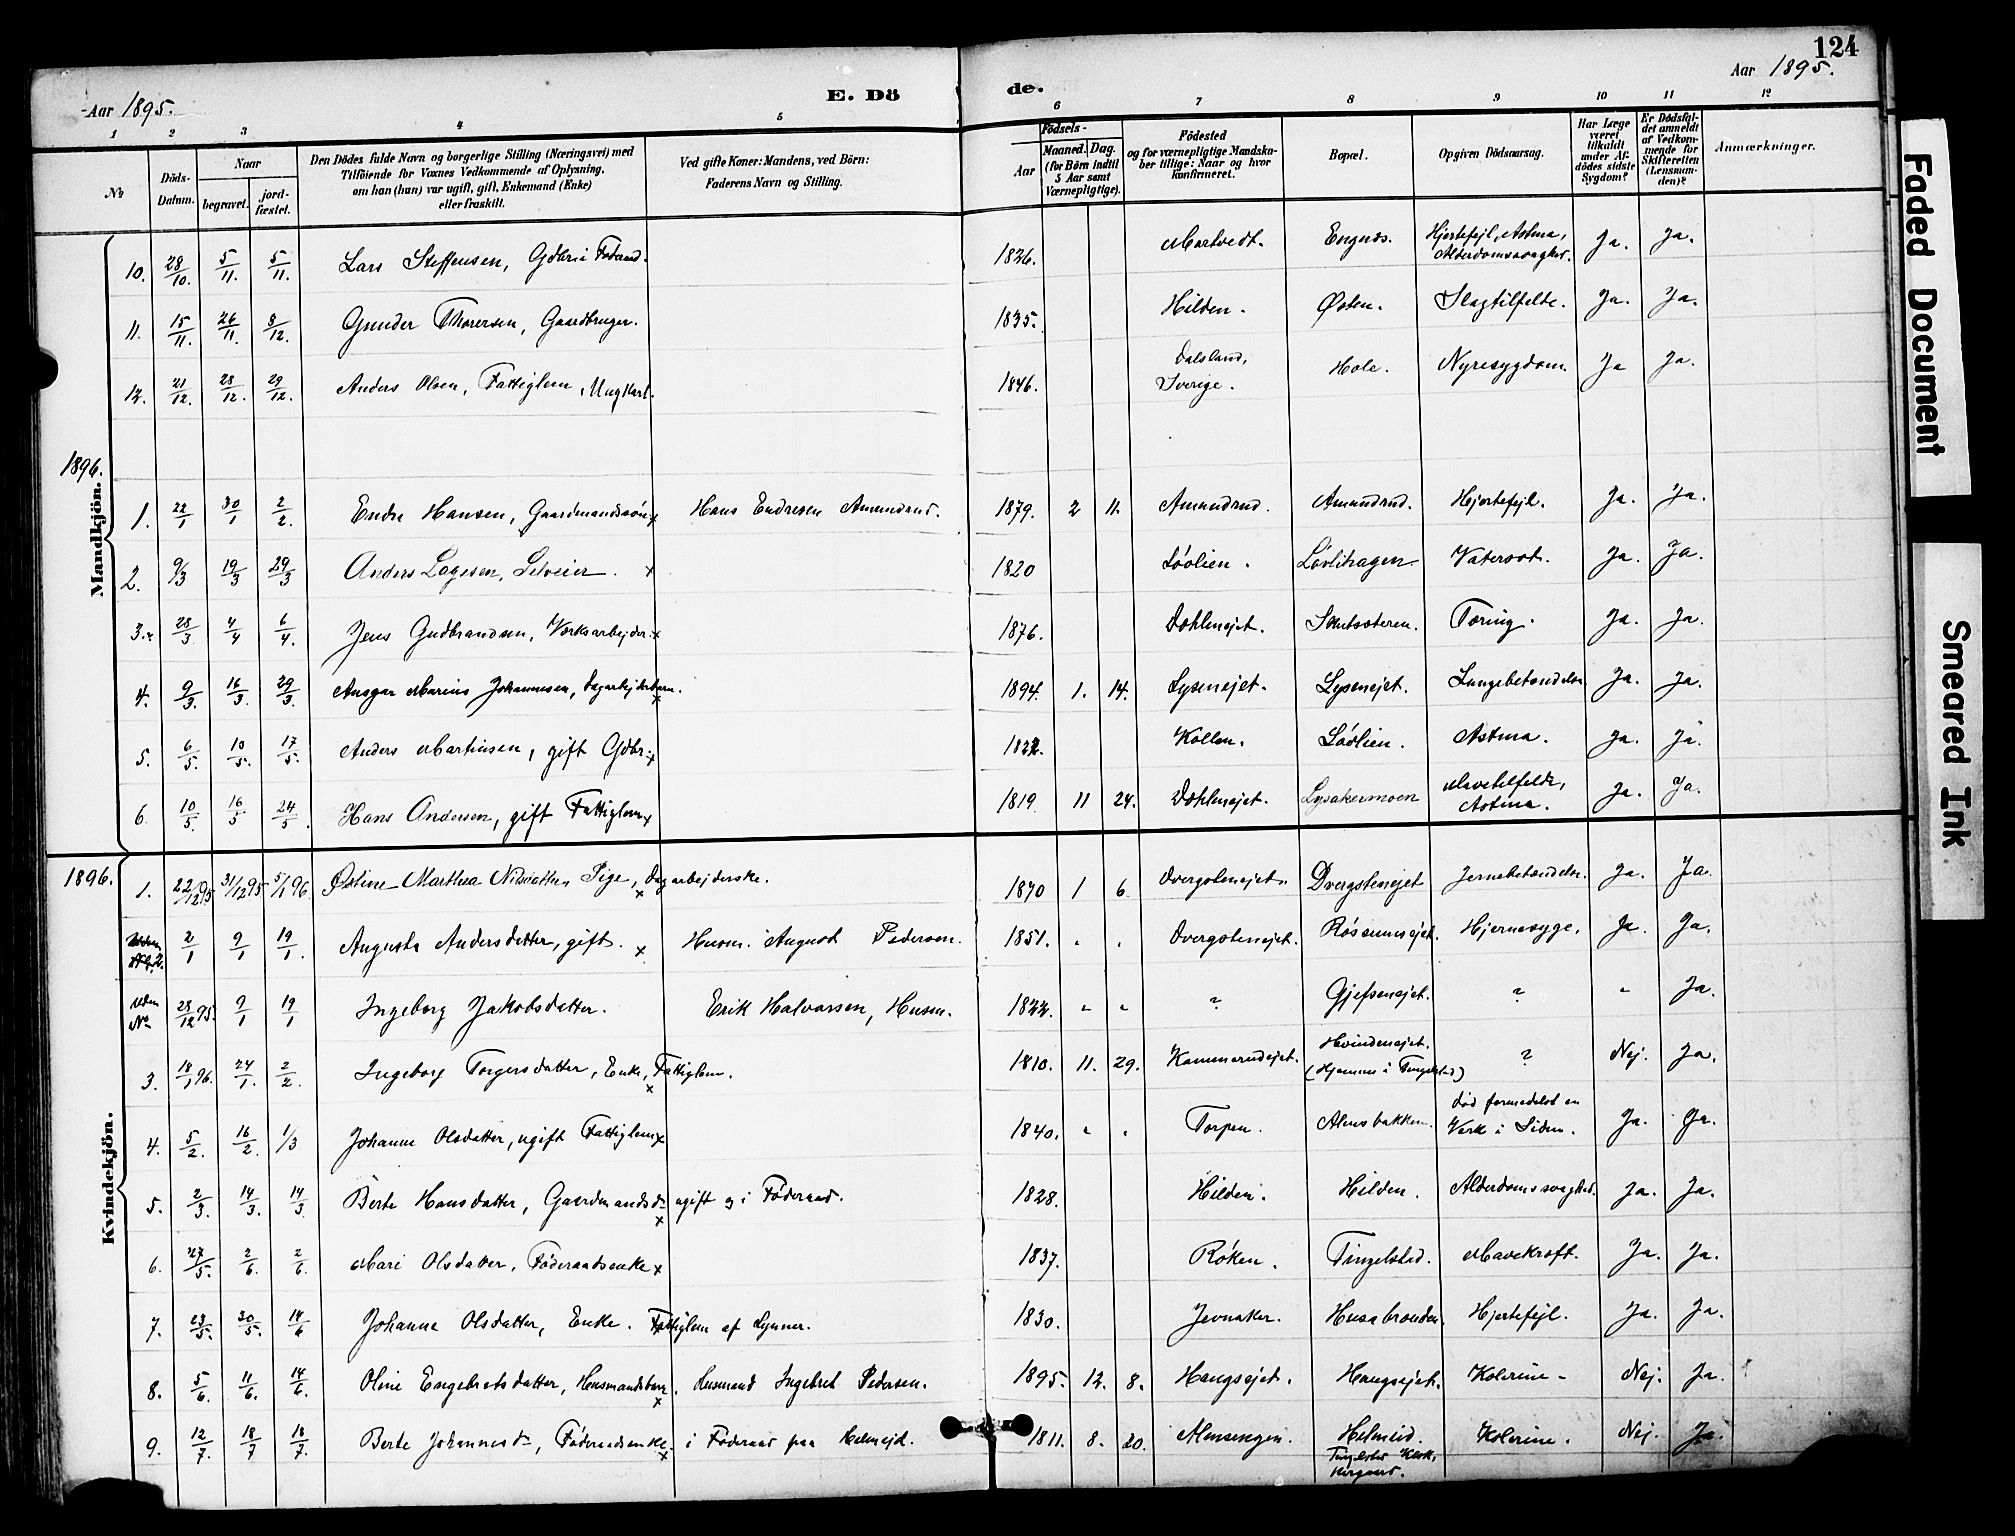 124
Aar 1895. E. Dö de. Aar 1895.
1 2 3 4 5 6 7 8 9 10 11 12
No.
Döds-Datum.
Naar
begravet.
jord-fæstet.
Den Dödes fulde Navn og borgerlige Stilling (Næringsvei) med
Tilföiende for Voxnes Vedkommende af Oplysning,
om han (hun) var ugift, gift, Enkemand (Enke)
eller fraskilt.
Ved gifte Koner: Mandens, ved Börn:
Faderens Navn og Stilling.
Födsels-
Aar
Maaned. Dag.
(for Börn indtil
5 Aar samt
Værnepligtige).
Födested
og for værnepligtige Mandska-
ber tillige: Naar og hvor
konfirmeret.
Bopæl.
Opgiven Dödsaarsag.
Har Læge
været
tilkaldt
under Af-
dödes sidste
Sygdom?
Er Dödsfal-
det anmeldt
af Vedkom-
mende for
Skifteretten
(Lensman-
den)?
Anmærkninger.
10. 28/10. 5/11. 5/11. Lars Steffensen, Gdbr. i Föderaad. 1826. Mortvedt. Engnæs. Hjertefejl, Astma, Alderdomssvaghed. Ja. Ja.
11. 15/11. 26/11. 8/12. Gunder Thorersen, Gaardbruger. 1835. Hilden. Østen. Slagtilfelde. Ja. Ja.
12. 21/12. 28/12. 29/12. Anders Olsen, Fattiglem, Ungkarl. 1846. Dalsland, Sverige. Hole. Nyresygdom. Ja Ja.
1896.
Mandkjön.
1. 22/1 30/1 2/2. Endre Hansen, Gaardmandssön x Hans Endresen Amundrud. 1879. 2 11. Amundrud. Amundrud. Hjertefejl. Ja. Ja.
2. 9/3 19/3 29/3 Anders Lagesen, Selveier. x 1820 Lövlien. Lövlihagen Vatersot. Ja. Ja.
3. 28/3 4/4 6/4. Jens Gudbrandsen, Værksarbejder. x 1876. Dæhlenejet. Skutsæteren. Tæring. Ja. Ja.
4. 9/3. 16/3. 29/3. Ansgar Marius Johannesen, Dagarbejderbarn. x 1894. 1. 14. Lysenejet. Lysenejet. Lungebetændelse. Ja. Ja.
5. 6/5. 10/5. 17/5. Anders Martinsen, gift Gdbr. x 1822. Kollen. Lövlien. Astma. Ja. Ja.
6. 10/5. 16/5 24/5. Hans Andersen, gift Fattiglem x 1819. 11 24. Dæhlenejet. Lysakermoen Mavetilfelde, Astma. Ja. Ja.
1896.
Kvindekjön.
1. 22/12 95 31/12 95 5/1 96. Østine Marthea Nilsdatter, Pige, Dagarbejderske. x 1870 1 6. Dvergstenejet. Dvergstenejet Jernebetændelse. Ja. Ja.
2/1 9/1 19/1 Augusta Andersdatter, gift. x Husm. August Pedersen. 1851. Dvergstenejet. Røssumsejet. Hjernesyge. Ja. Ja.
uden No. 28/12 95. 9/1 19/1 Ingeborg Jakobsdatter. Erik Halvorsen, Husm. 1822. ? Gjefsenejet. ? Ja.
3. 18/1 96. 24/1. 2/2. Ingeborg Torgersdatter, Enke, Fattiglem. x 1810. 11. 29. Kammerudejet. Hvindensejet. (Hjemme i Tingelstad) ? Nej. Ja.
4. 5/2. 16/2. 1/3 Johanne Olsdatter, ugift Fattiglem x 1840. Torpen. Almsbakken. Död formedelst en Værk i Siden. Ja. Ja.
5. 2/3. 14/3. 14/3 Berte Hansdatter, Gaardmandsd. ugift og i Föderaad. x 1828. Hilden. Hilden. Alderdomssvaghed. Ja. Ja.
6. 27/5. 2/6. 2/6. Mari Olsdatter, Föderaadsenke x 1837. Røken. Tingelstad. Mavekræft. Ja. Ja.
7. 23/5. 30/5. 14/6 Johanne Olsdatter, Enke. Fattiglem af Lynner. 1830. Jevnaker. Husabraaden. Hjertefejl. Ja. Ja.
8. 5/6. 11/6. 14/6. Oline Engebretsdatter, Husmandsbarn. x Husmand Ingebret Pedersen. 1895. 12. 8. Haugsejet. Haugsejet. Kolerine. Nej. Ja.
9. 12/7. 18/7 18/7. Berte Johannesd., Föderaadsenke x i Föderaad paa Helmejd. 1811. 8. 20. Almsengen. Helmeid. Kolerine. Nej. Ja.
Faded Document
Smeared Ink